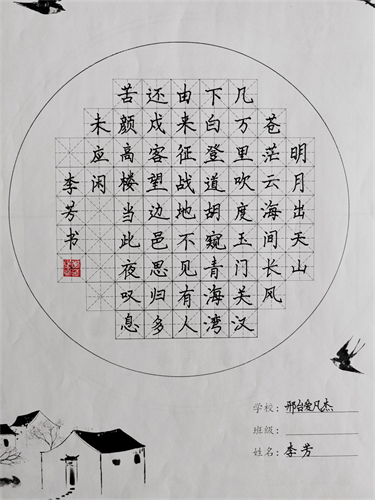 明月出天山
苍茫云海间长风
几万里吹度玉门关汉
下白登道胡窥青海湾
由来征战地不见有人
还戍客望边邑思归多
苦颜高楼当此夜叹息
未应闲
李芳书
学校：邢台爱凡杰
班级：
姓名：李芳